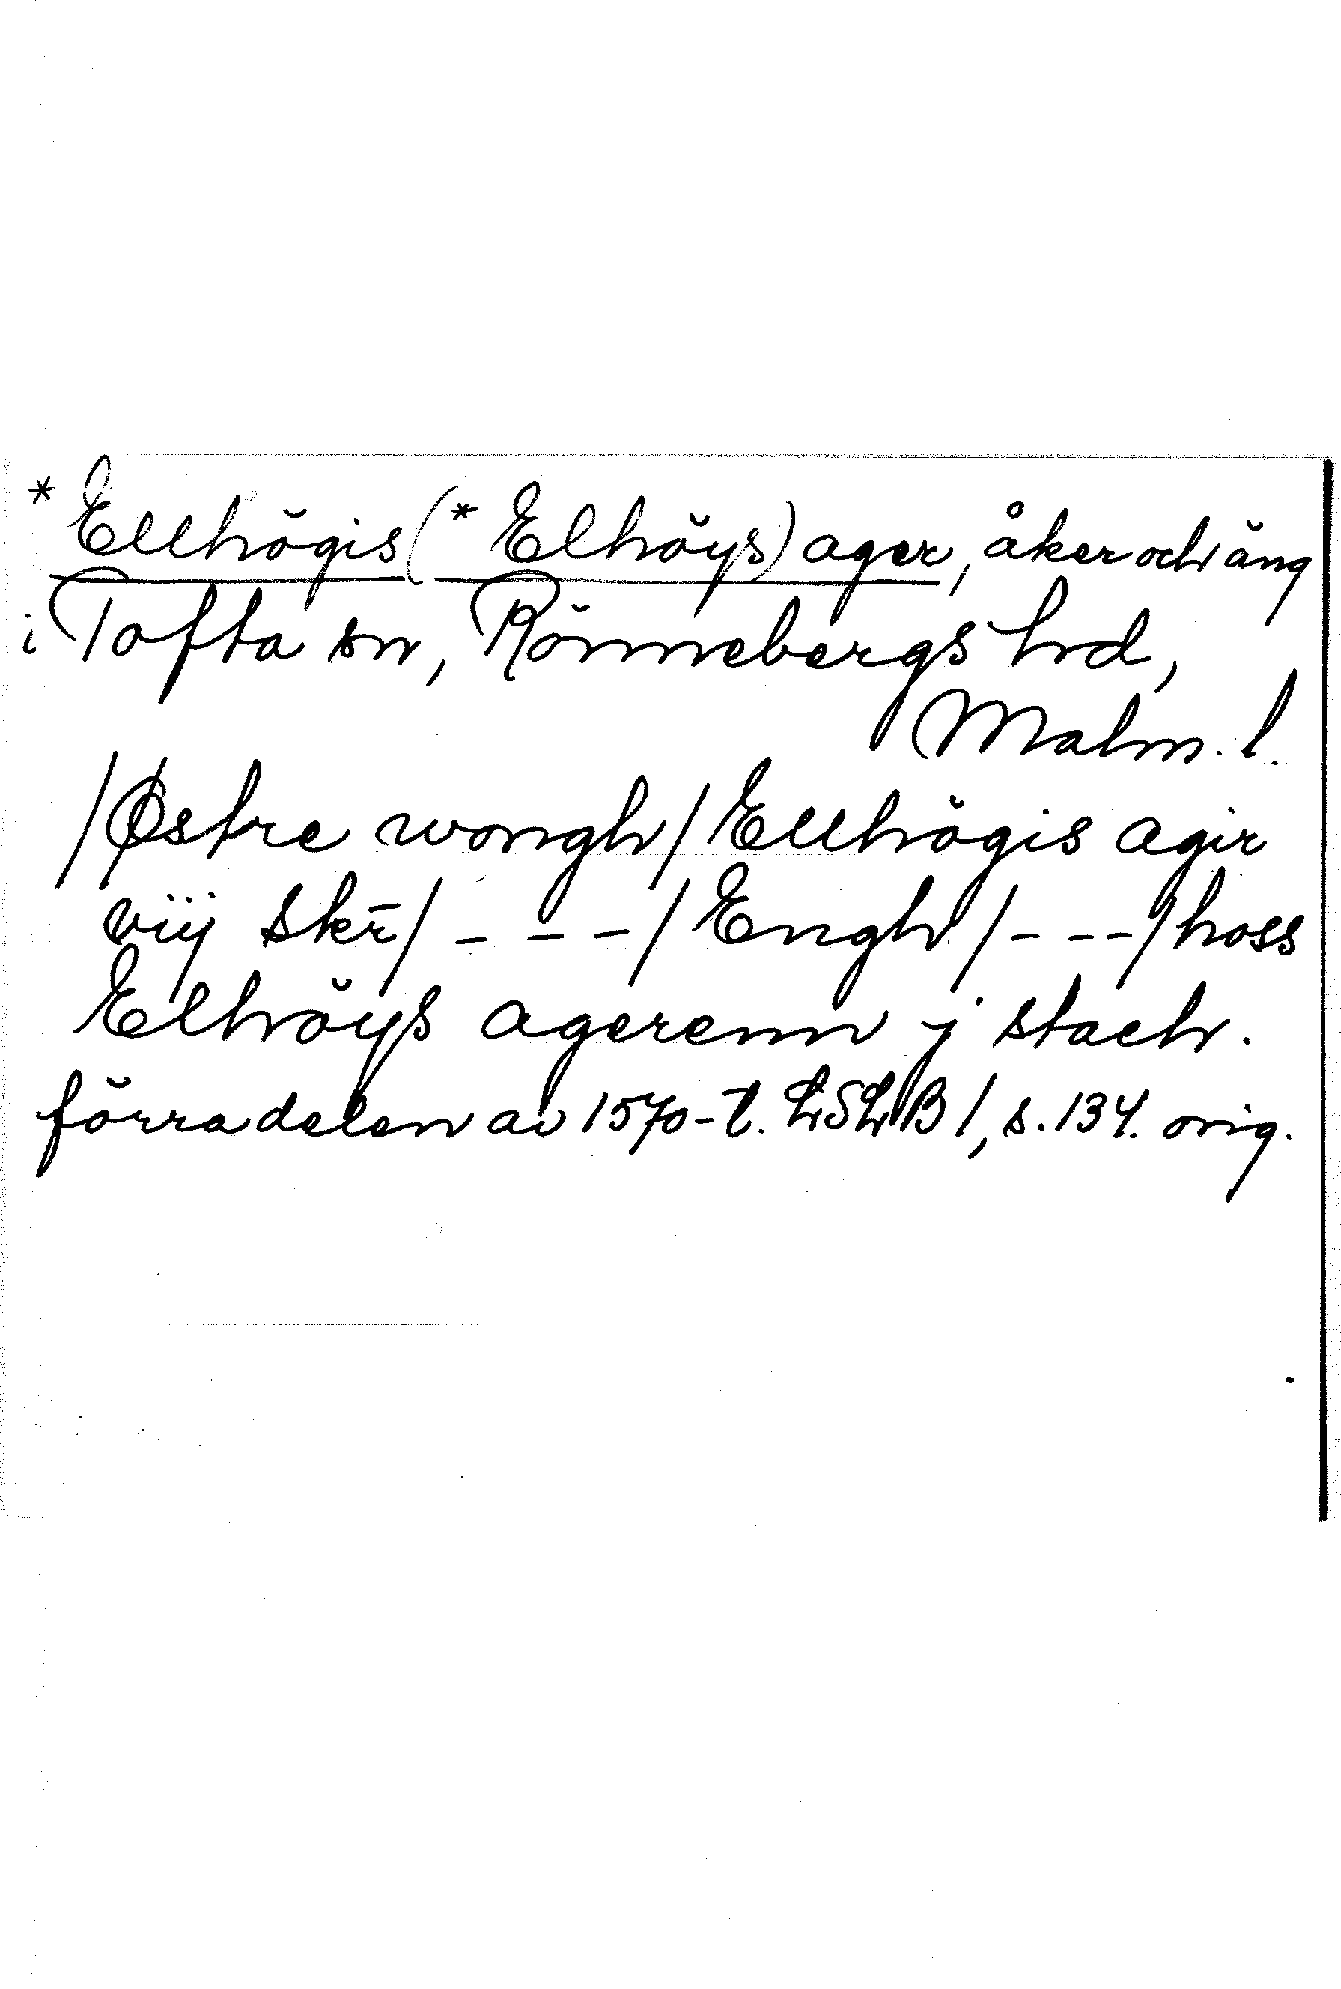 *Ellhögis (*Elhöys) ager, åker och äng
i Tofta sn, Rönnebergs hd,
Malm. l.
/Østre wongh/ Ellhögis agir
vij skr̄/ _ _ _ / Engh /_ _ _/ hoss
Elhöys agerenn j stach.
förra delen av 1570-t. LSLB 1, s. 134. orig.